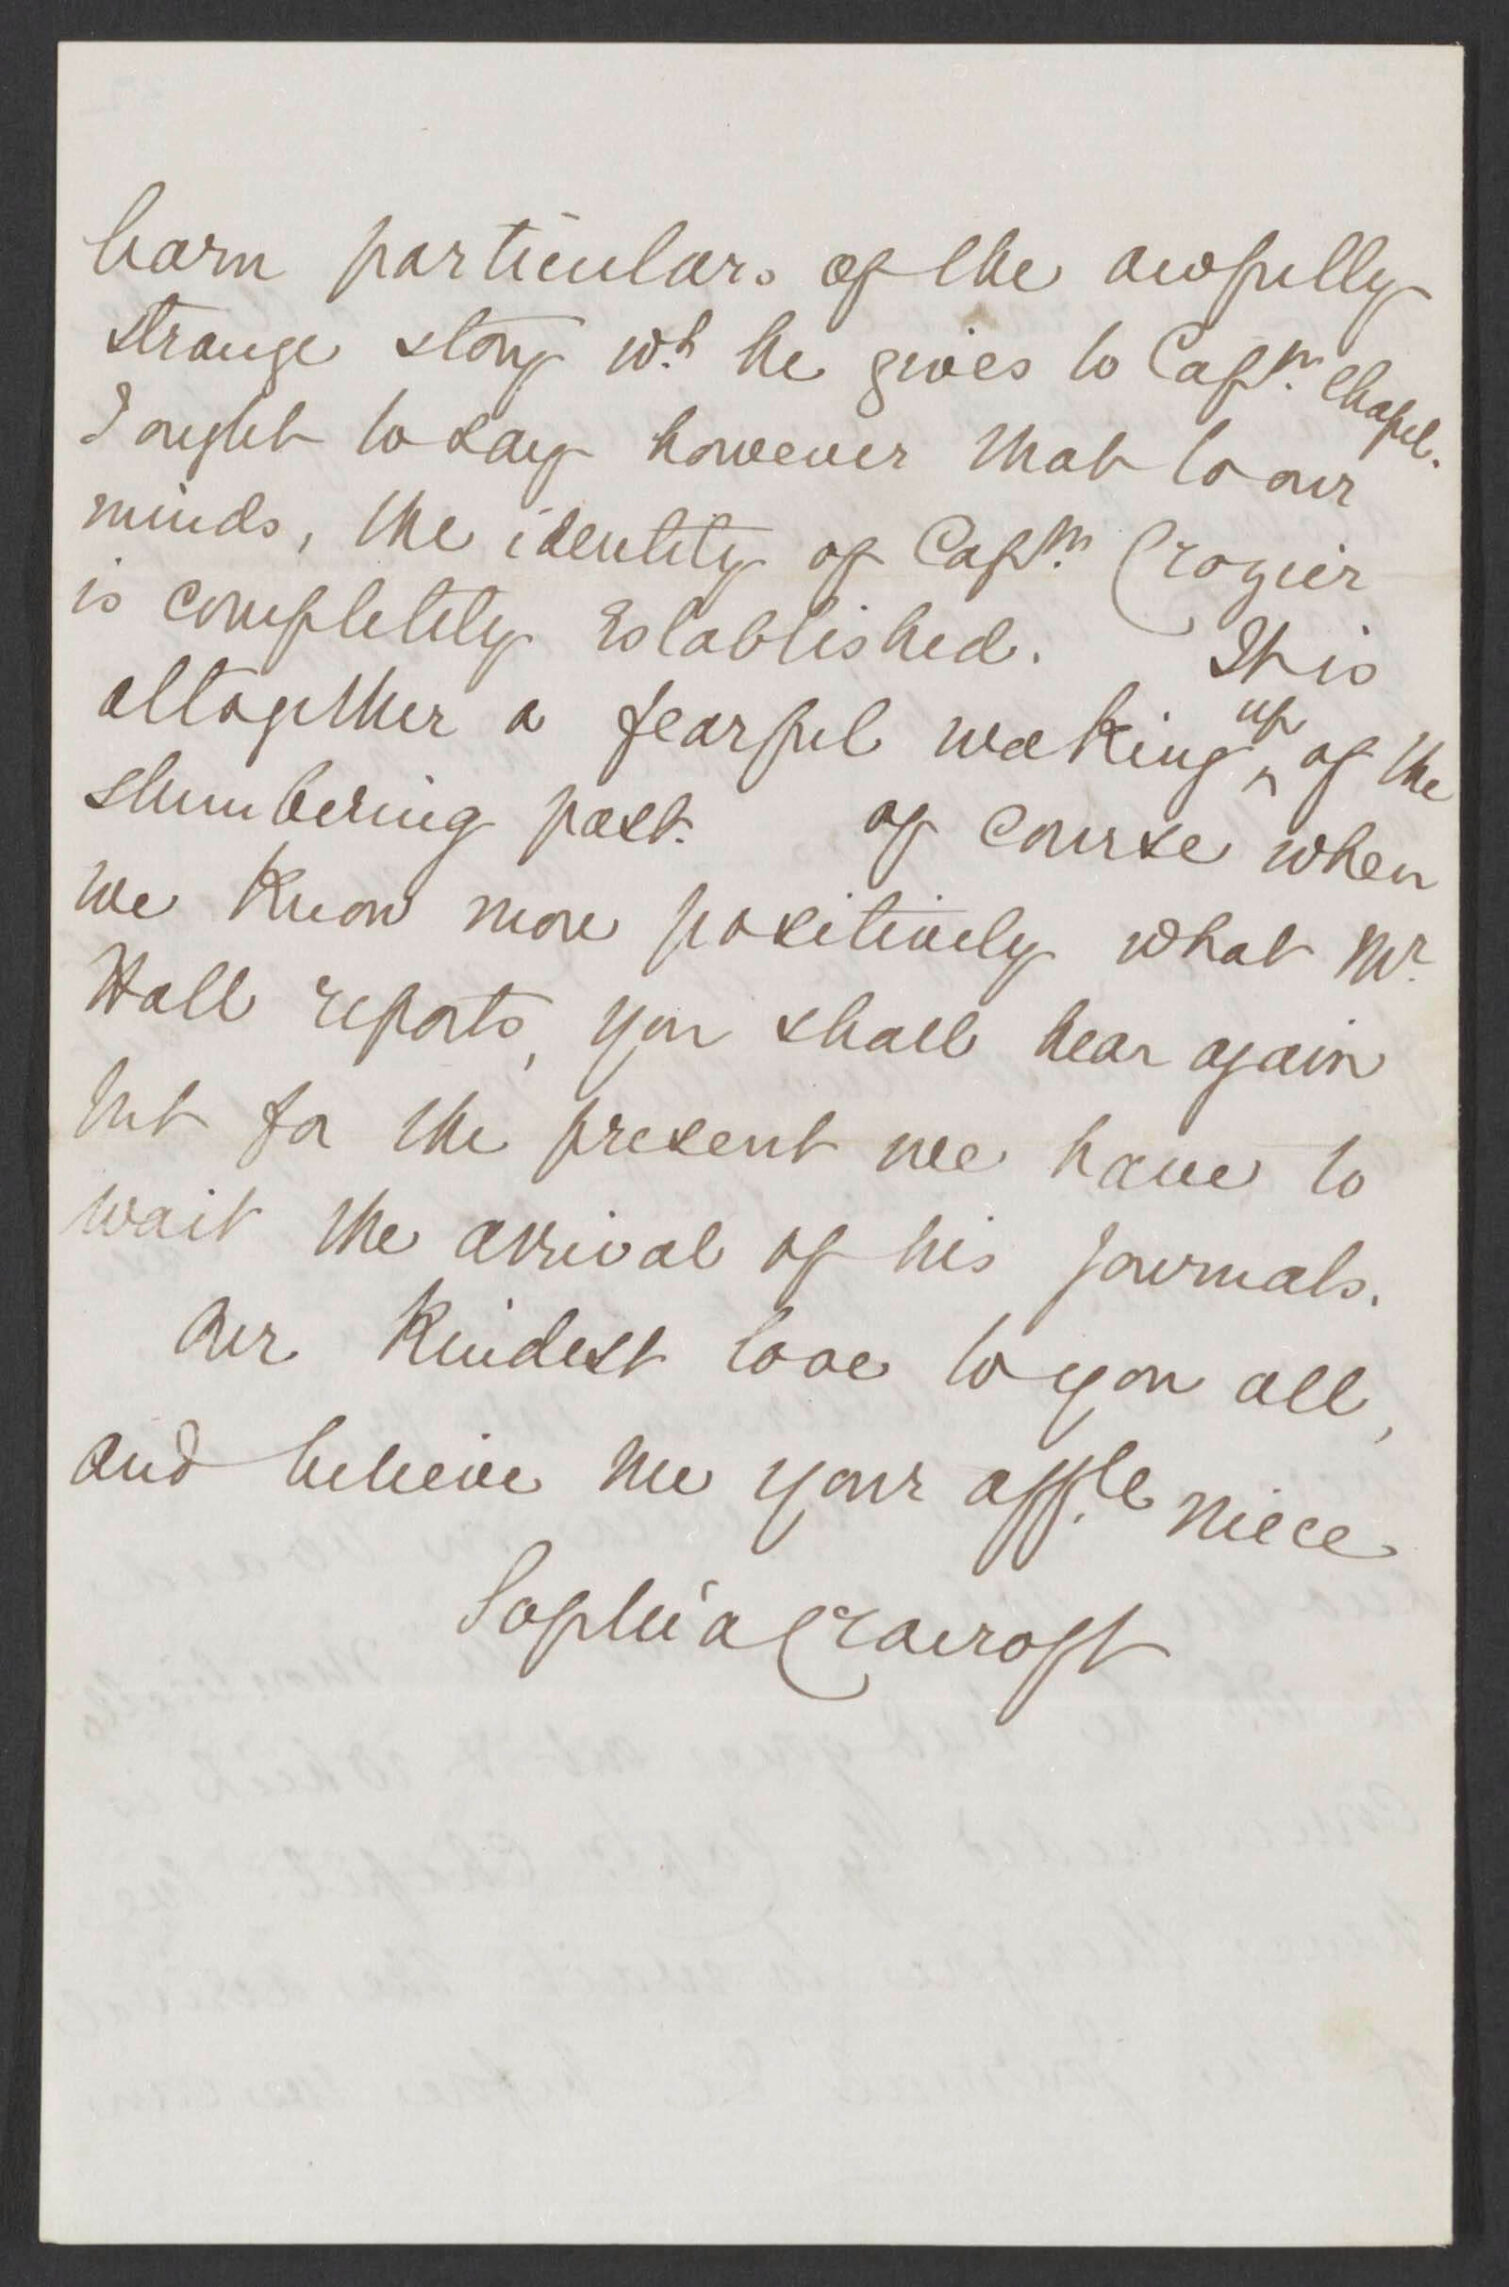 learn particulars of the awfully
strange story wh. he gives to Captn. Chapel.
I ought to say however that to our
minds, the identity of Captn. Crozier
is completely established. It is
altogether a fearful waking up of the
slumbering past. Of course when
we know more positively what Mr.
Hall reports, you shall hear again
but for the present we have to
wait the arrival of his journals.
Our kindest love to you all,
and believe me your affte. niece
Sophia Cracroft